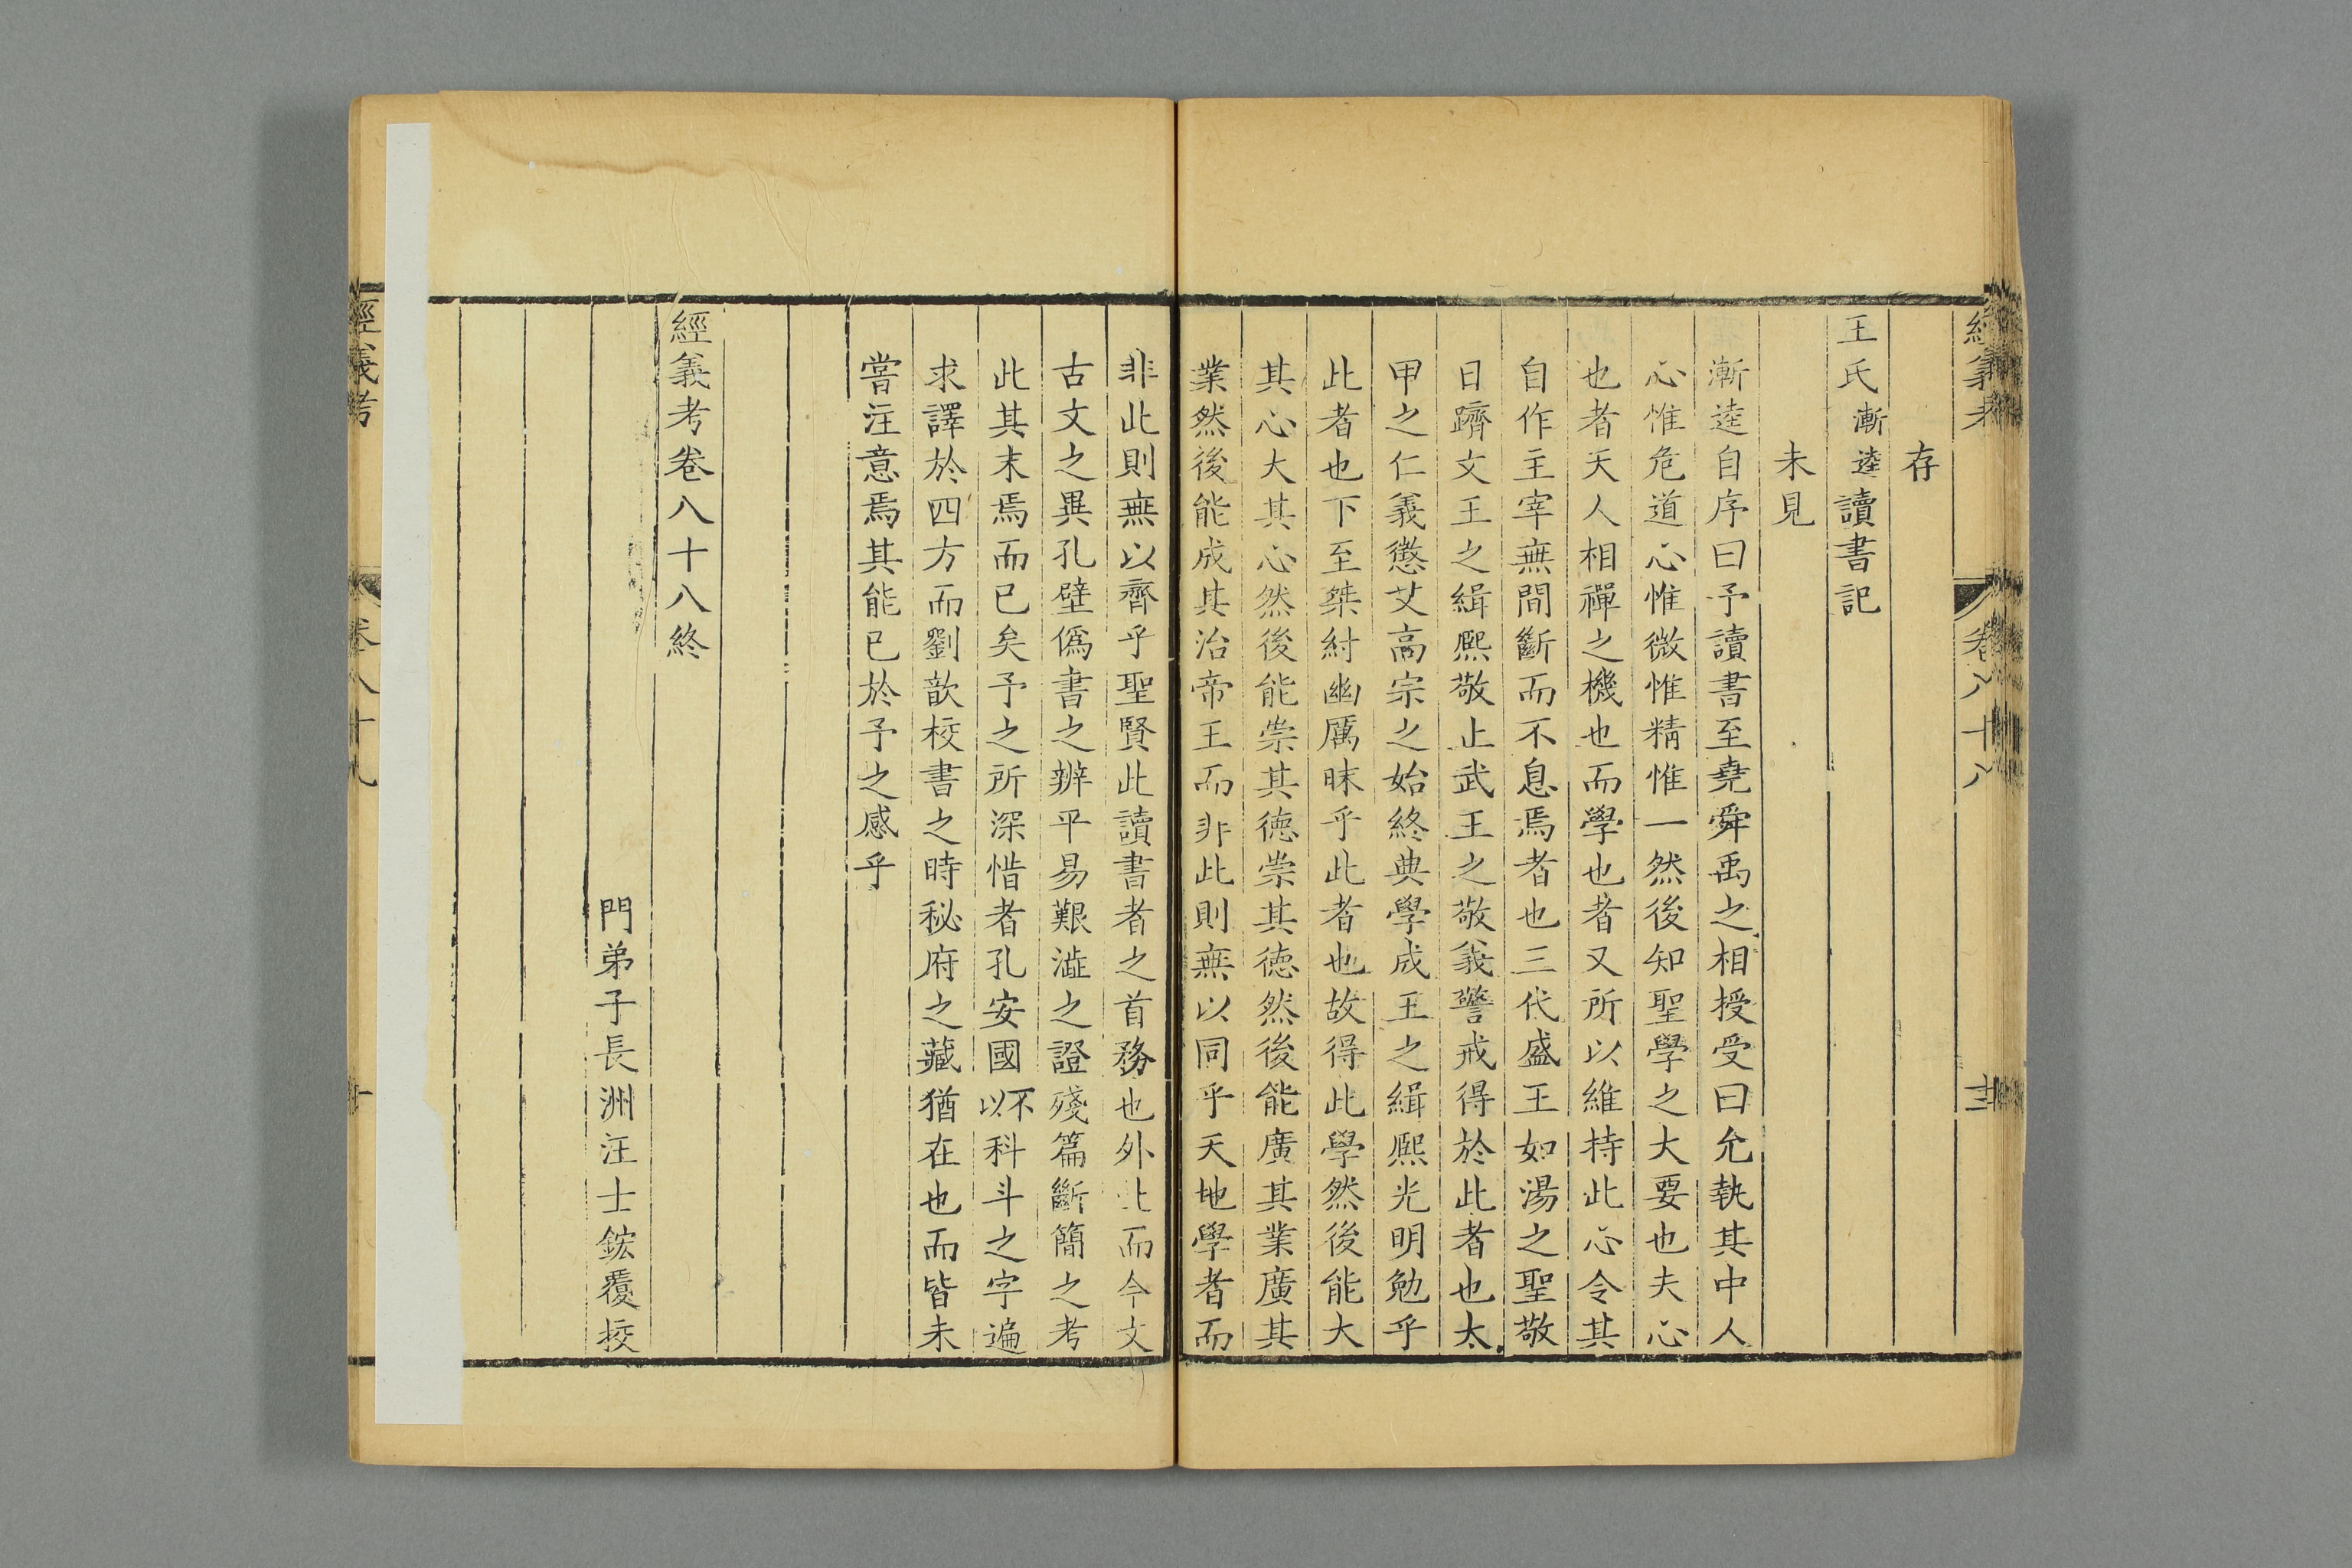 經義考
卷八十八
存
王氏漸逵讀書記
未見
漸逵自序曰予讀書至堯舜禹之相授受曰允執其中人
心惟危道心惟微惟精惟一然後知聖學之大要也夫心
也者天人相禪之機也而學也者又所以維持此心令其
自作主宰無間斷而不息焉者也三代盛王如湯之聖敬
日躋文王之緝熈敬止武王之敬義警戒得於此者也太
甲之仁義懲艾高宗之始終典學成王之緝熈光明勉乎
此者也下至桀紂幽厲昧乎此者也故得此學然後能大
其心大其心然後能崇其德崇其德然後能廣其業廣其
業然後能成其治帝王而非此則無以同乎天地學者而
非此則無以齊乎聖賢此讀書者之首務也外此而今文
古文之異孔壁僞書之辨平易艱澁之證殘篇斷簡之考
此其末焉而已矣予之所深惜者孔安國不以科斗之字遍
求譯於四方而劉歆校書之時秘府之藏猶在也而皆未
嘗注意焉其能已於予之感乎
經義考卷八十八終
門弟子長洲汪士鋐覆挍
經義考
卷八十九